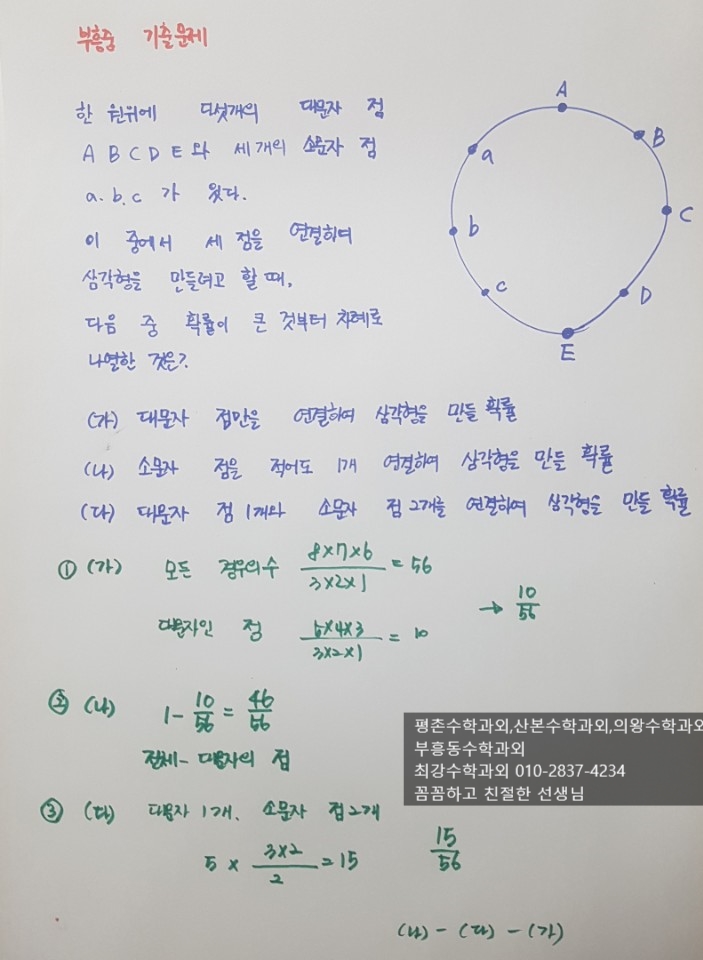 부흥중 기출문제
한 원위에 다섯개의 대문자 점
A B C D E와 세개의 소문자 점
a.b.c 가 있다.
이 중에서 세 점을 연결하여
삼각형을 만들려고 할 때,
다음 중 확률이 큰 것부터 차례로
나열한 것은?
A
B
C
D
E
a
b
c
(가) 대문자 점만을 연결하여 삼각형을 만들 확률
(나) 소문자 점을 적어도 1개 연결하여 삼각형을 만들 확률
(다) 대문자 점 1개와 소문자 점 2개를 연결하여 삼각형을 만들 확률
① (가) 모든 경우의수 8×7×6/3×2×1 = 56
대문자인 점 5×4×3/3×2×1 = 10
→ 10/56
② (나) 1- 10/56 = 46/56
전체- 대문자의 점
③ (다) 대문자 1개, 소문자 점 2개
5 × 3×2/2 = 15
15/56
(나) - (다) - (가)
평촌수학과외,산본수학과외,의왕수학과외
부흥동수학과외
최강수학과외 010-2837-4234
꼼꼼하고 친절한 선생님